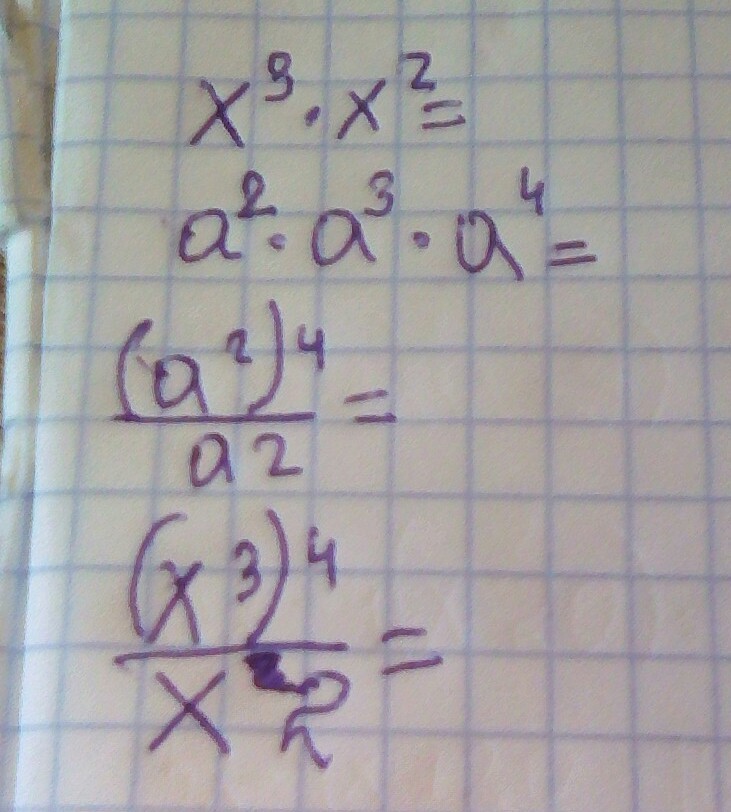 x³·x²=
a²·a³·a⁴=
(a²)⁴
a2 =
(x³)⁴
x 2 =